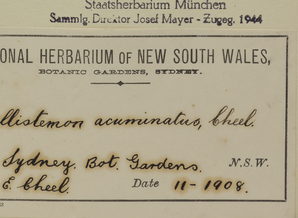 Staatsherbarium München
Sammlg. Direktor Josef Mayer - Zugeg. 1944
ONAL HERBARIUM OF NEW SOUTH WALES,
BOTANIC GARDENS, SYDNEY.
llistemon acuminatus, Cheel.
Sydney. Bot. Gardens. N.S.W.
E. Cheel. Date 11-1908.